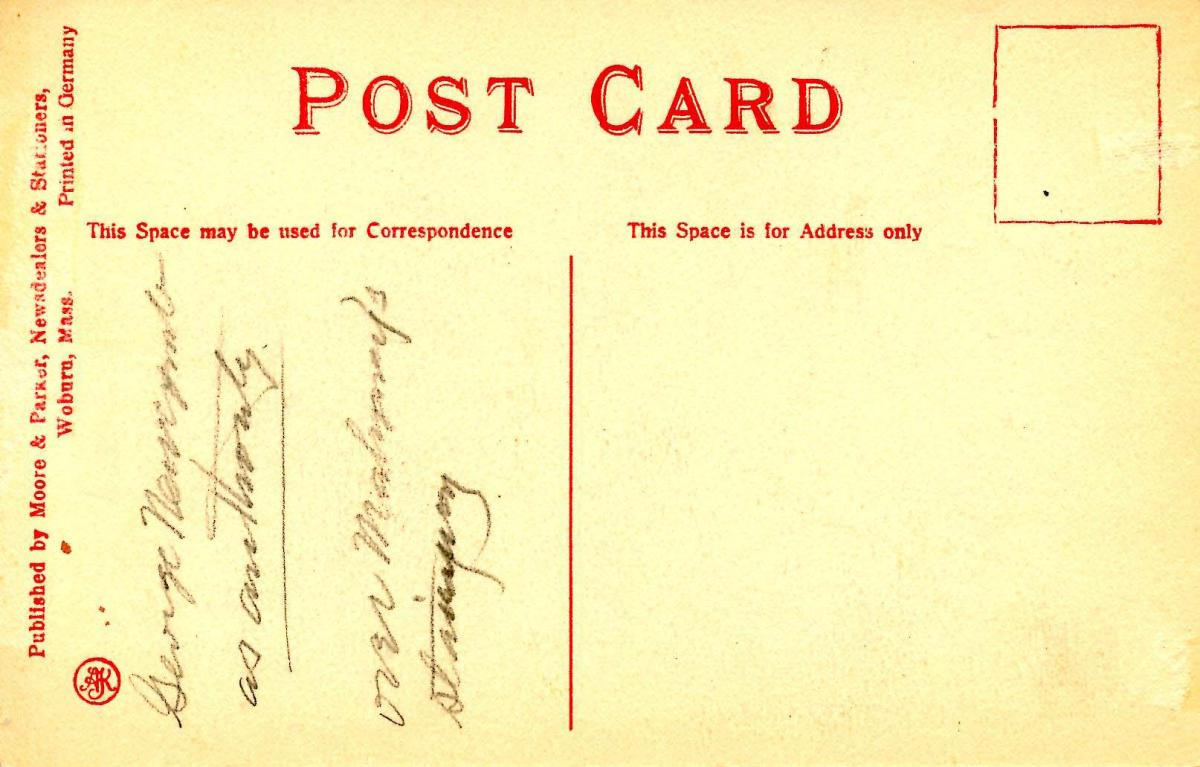 POST CARD
This Space may be used for Correspondence
This Space is for Address only
Published by Moore & Parker, Newsdealers & Stationers,
Woburn, Mass. Printed in Germany
George Newcomb
as authority.
over